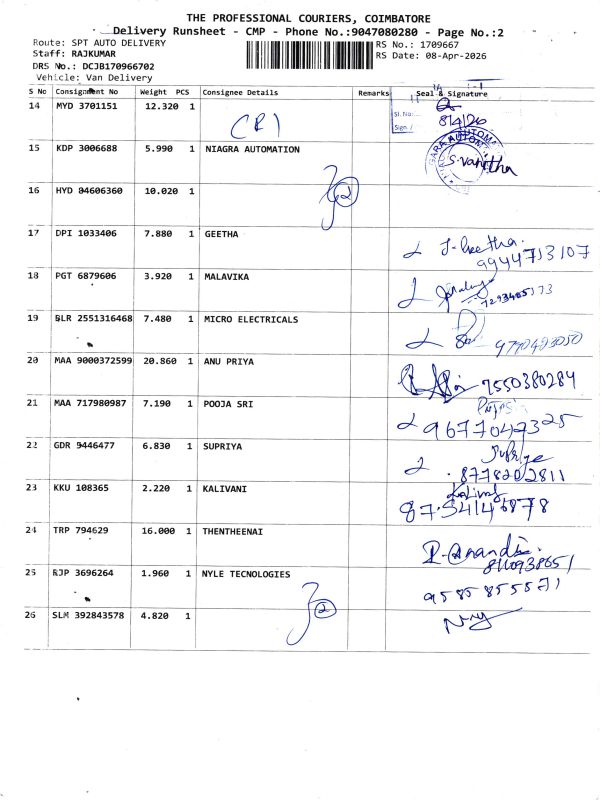 THE PROFESSIONAL COURIERS, COIMBATORE
Delivery Runsheet - CMP - Phone No.:9047080280 - Page No.:2
Route: SPT AUTO DELIVERY
RS No.: 1709667
Staff: RAJKUMAR
RS Date: 08-Apr-2026
DRS No.: DCJB170966702
Vehicle: Van Delivery
S No Consignment No Weight PCS Consignee Details Remarks Seal & Signature
14 MYD 3701151 12.320 1
Sl. No:
8/4/26
Sign /
15 KDP 3006688 5.990 1 NIAGRA AUTOMATION
S.Vanitha
16 HYD 04606360 10.020 1
2
17 DPI 1033406 7.880 1 GEETHA
J-Geetha.
9944713107
18 PGT 6879606 3.920 1 MALAVIKA
19 BLR 2551316468 7.480 1 MICRO ELECTRICALS
20 MAA 9000372599 20.860 1 ANU PRIYA
7550380284
21 MAA 717980987 7.190 1 POOJA SRI
9677047325
22 GDR 9446477 6.830 1 SUPRIYA
8778202811
23 KKU 108365 2.220 1 KALIVANI
24 TRP 794629 16.000 1 THENTHEENAI
25 RJP 3696264 1.960 1 NYLE TECNOLOGIES
9585855571
2
26 SLM 392843578 4.820 1